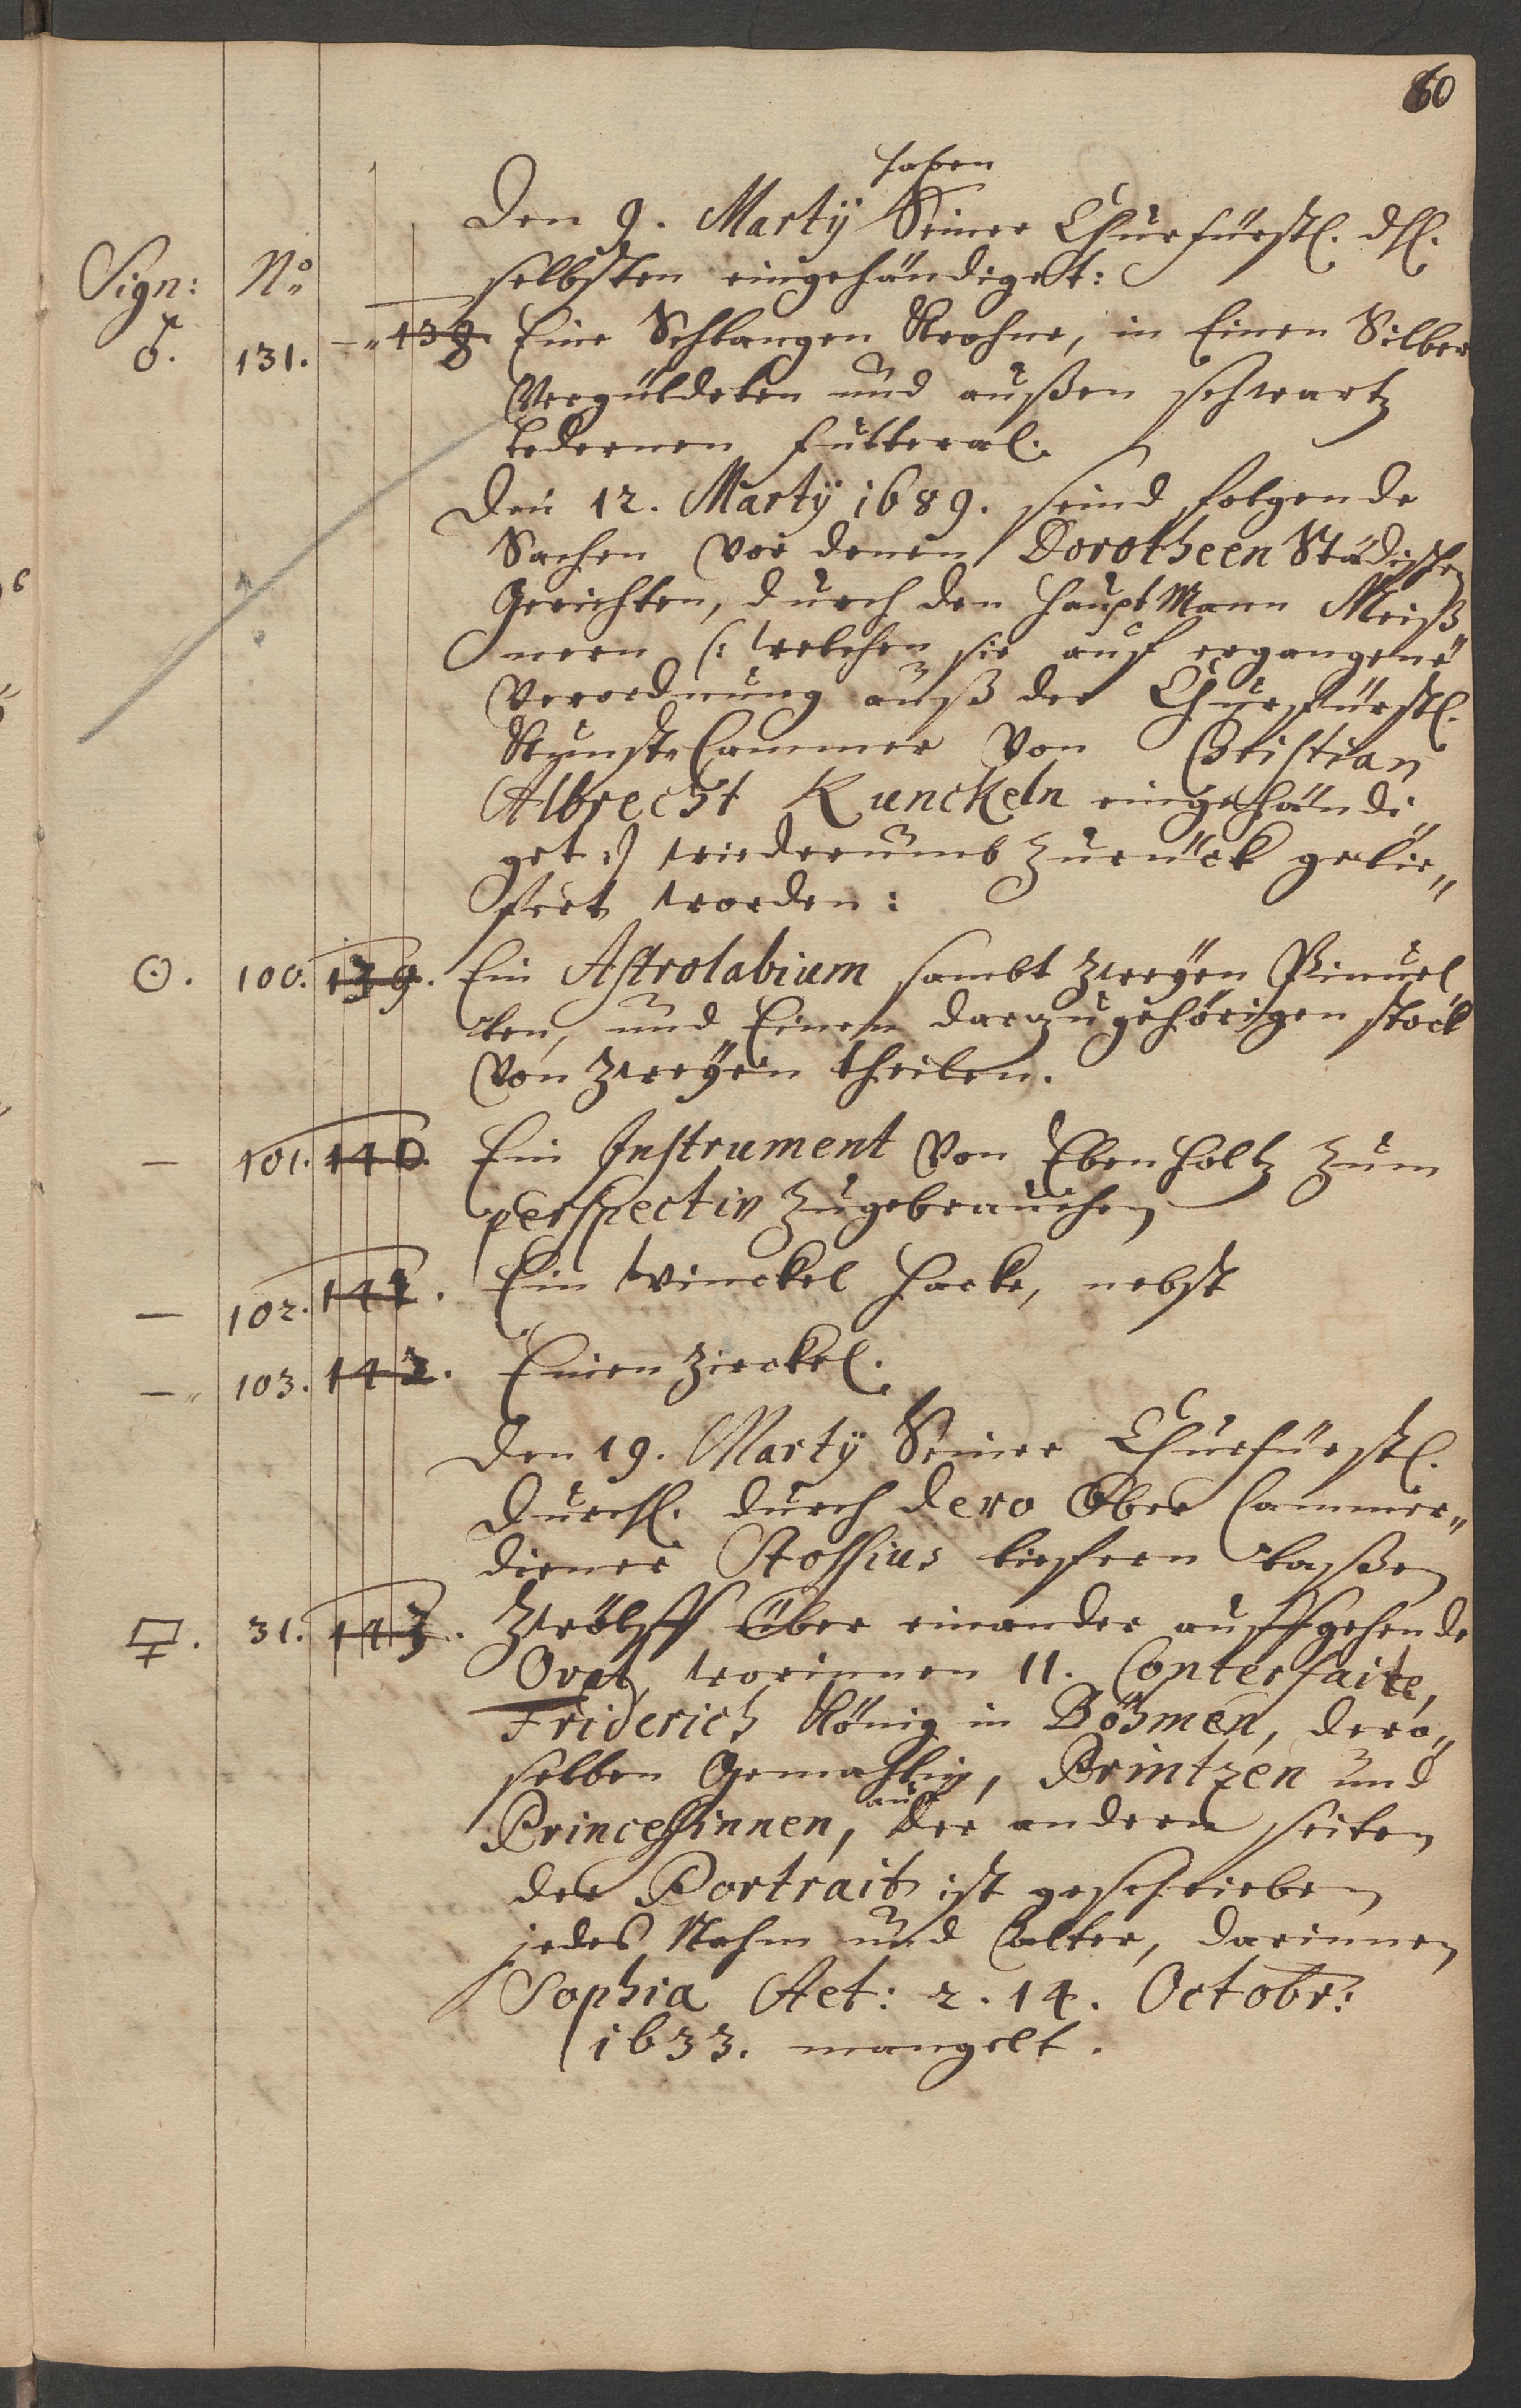 60
haben
Den 9. Martÿ Seiner Churfürstl. dhl.
Sign: No selbsten eingehändiget:
♂. 131. –" 138. Eine Schlangen Krohne, in Einen Silber
Vergüldeten und außen schwartz
ledernen futteral.
Den 12. Martÿ 1689. seind folgende
Sachen von denen Dorotheen Städischen
Gerichten, durch den HauptMann Meiß
nern (: welchen sie auf ergangene
Verordnung auß der Churfürstl.
Kunst Cammer von Christian
Albrecht Kunckeln eingehändi„
get :) wiederumb zurück gelie„
fert worden:
☉. 100. 139. Ein Astrolabium sambt zweÿen Pinuel
len, und Einen darzugehörigen stock
von zweÿen theilen.
– 101. 140. Ein Instrument von Ebenholtz zum
perspectiv zugebrauchen
– 102. 141. Ein winckel Hacke, nebst
–" 103. 142. Einen Zirckel.
Den 19. Martÿ Seiner Churfürstl.
Durchl. durch dero Ober Cammer„
diener Stossius liefern laßen
31. 143. Zwölff über einander auffgehende
Ovat, worinnen 11. Conterfaite,
Friderich König in Böhmen, dero„
selben Gemahlin, Printzen und
auf
Princessinnen, der andern seiten
der Portrait ist geschrieben
jedes Nahm und alter, darinnen
Sophia Aet: 2. 14. Octobr:
1633. mangelt.